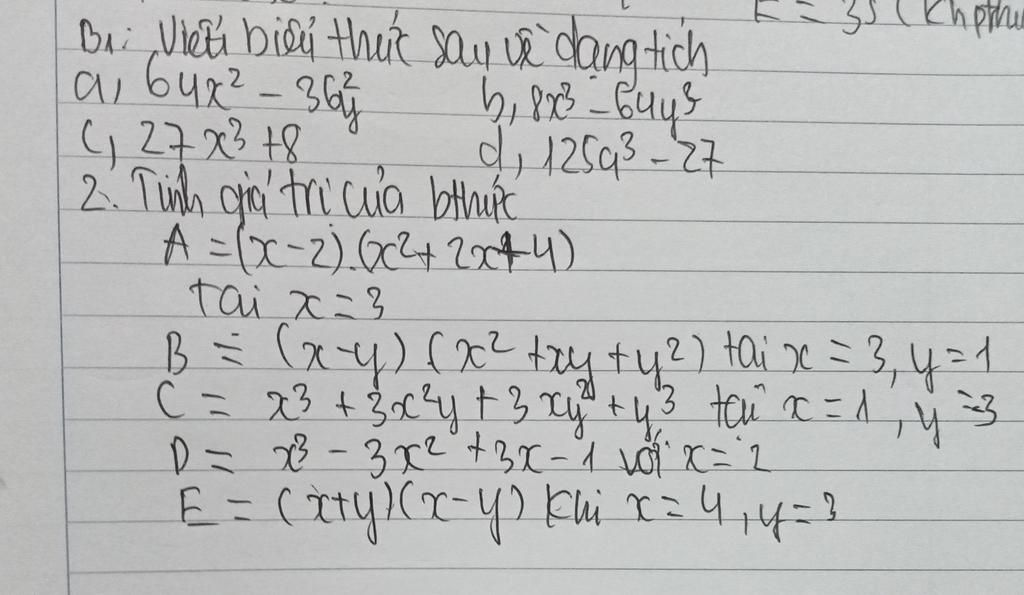 E = 35 (
B1: Viết biểu thức sau về dạng tích
a, 64x² - 36y² b, 8x³ - 64y³
c, 27x³ + 8 d, 125a³ - 27
2. Tính giá trị của bthức
A = (x-2).(x² + 2x + 4)
tại x = 3
B = (x-y) (x² + xy + y²) tại x = 3, y = 1
C = x³ + 3x²y + 3xy² + y³ tại x = 1, y = 3
D = x³ - 3x² + 3x - 1 với x = 2
E = (x+y)(x-y) khi x = 4, y = 3